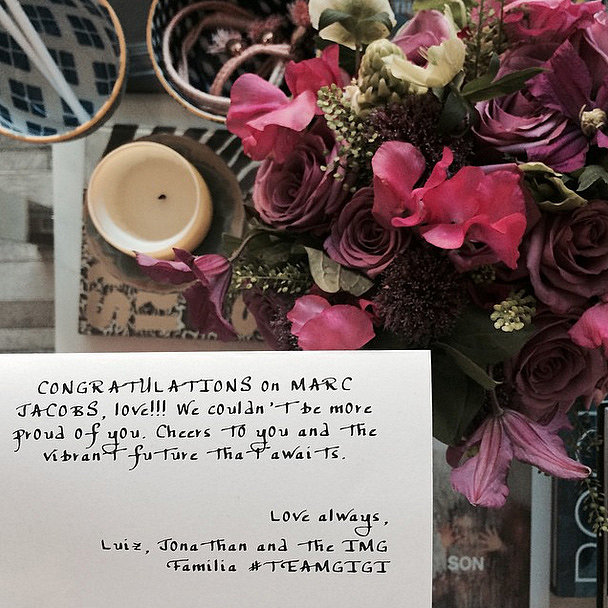 CONGRATULATIONS on MARC
JACOBS, love!!! We couldn't be more
proud of you. Cheers to you and the
vibrant future that awaits.
Love always,
Luiz, Jonathan and the IMG
Familia #TEAMGIGI
SON